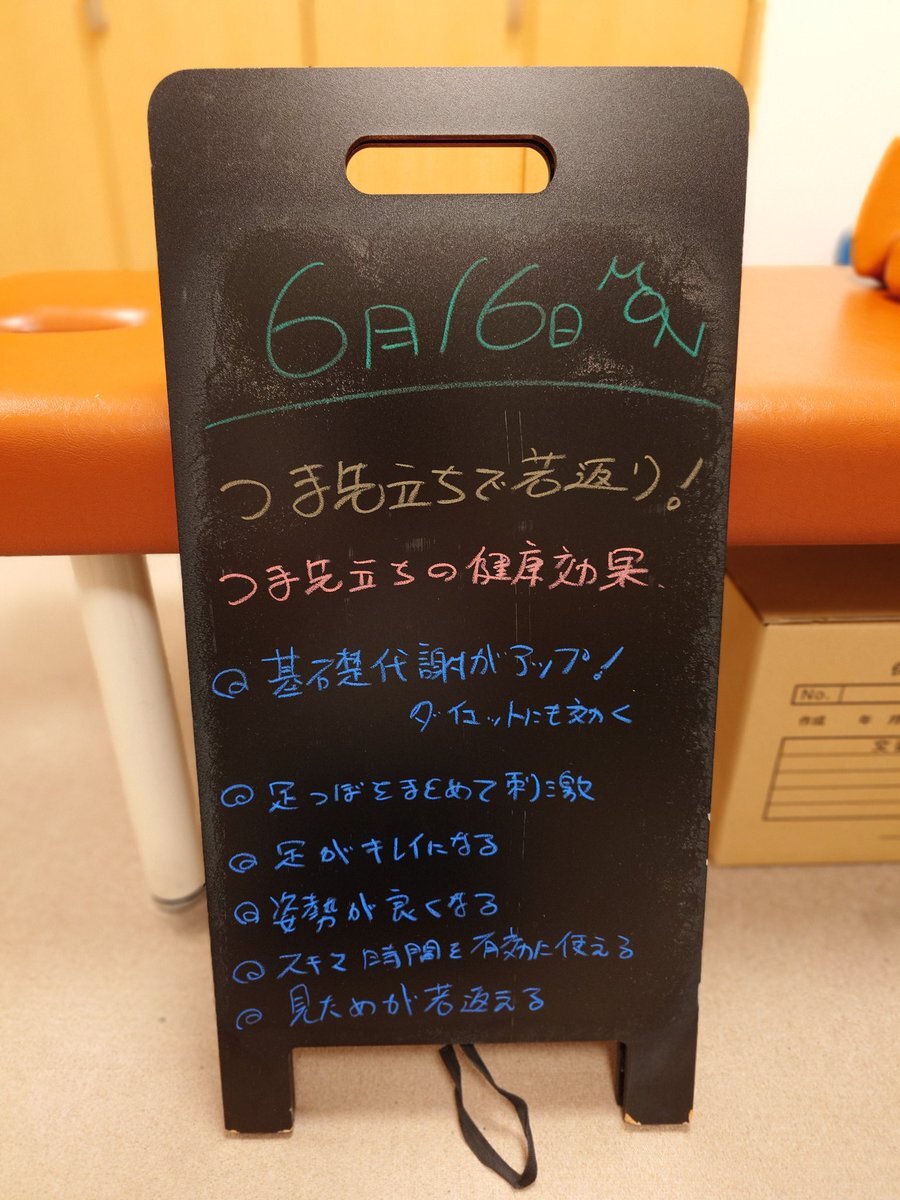 6月16日 MON
つま先立ちで若返り!
つま先立ちの健康効果
◎ 基礎代謝がアップ!
ダイエットにも効く
◎ 足つぼをまとめて刺激
◎ 足がキレイになる
◎ 姿勢が良くなる
◎ スキマ時間を有効に使える
◎ 見ためが若返える
No.
作成 年 月